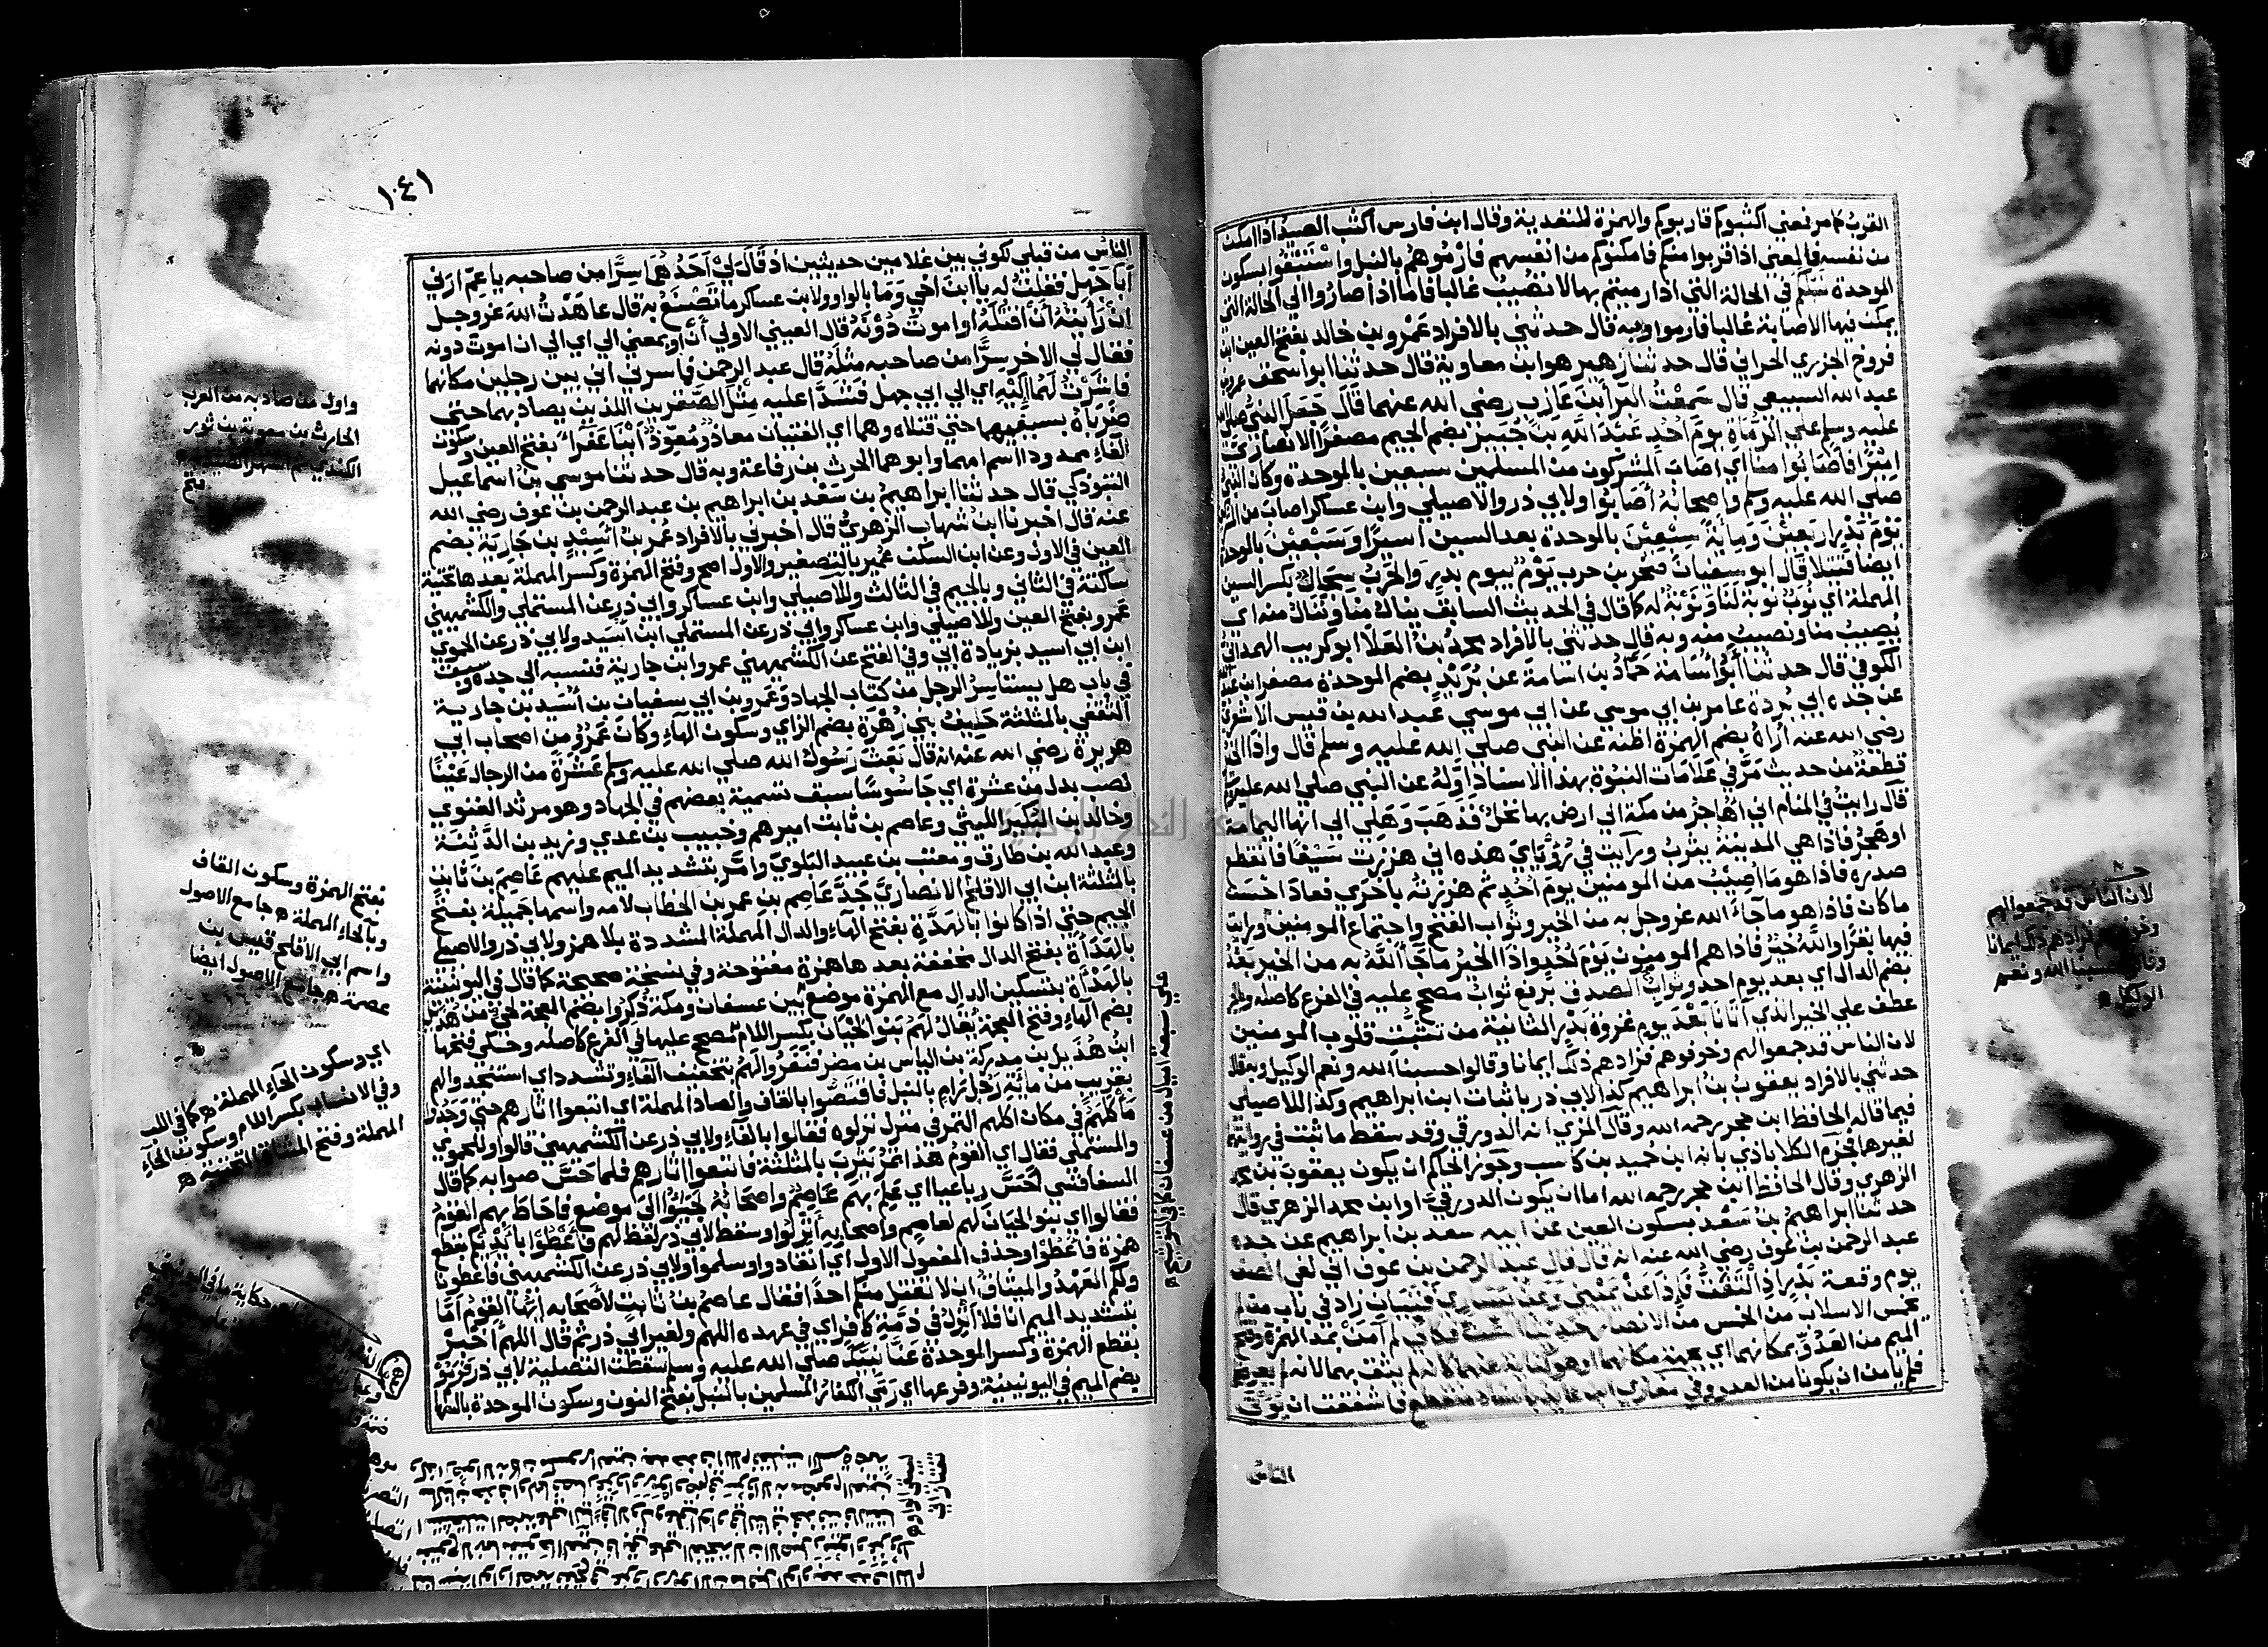 القرب كما مر فمعني اكثبوكم قاربوكم والهمزة للتعدية وقال ابن فارس اكثب الصيد اذا امكن
من نفسه فالمعني اذا قربوا منكم فامكنوكم من انفسهم فارموهم بالنبل واستبقوا بسكون
الموحدة نبلكم في الحالة التي اذا رميتم بها لا تصيب غالبا فاما اذا صاروا الي الحالة التي
يمكن فيها الاصابة غالبا فارموا وبه قال حدثني بالافراد عمرو بن خالد بفتح العين ابن
فروخ الجزري الحراني قال حدثنا زهير هو ابن معاوية قال حدثنا ابو اسحق عمرو بن
عبد الله السبيعي قال سمعت البرا بن عازب رضي الله عنهما قال جعل النبي صلي الله
عليه وسلم علي الرماة يوم احد عبد الله بن جبير بضم الجيم مصغرا الانصاري
اميرا فاصابوا منا اي اصاب المشركون من المسلمين سبعين بالموحدة وكان النبي
صلي الله عليه وسلم واصحابه اصابوا ولابي ذر والاصيلي وابن عساكر اصاب من المشركين
يوم بدر اربعين وماية سبعين بالموحدة بعد السين اسيرا وسبعين بالموحدة
ايضا قتيلا قال ابو سفيان صخر بن حرب يوم بيوم بدر والحرب سجال بكسر السين
المهملة اي نوب نوبة لنا ونوبة له كما قال في الحديث السابق ينال منا وننال منه اي
يصيب منا ونصيب منه وبه قال حدثني بالافراد محمد بن العلا ابو كريب الهمداني
الكوفي قال حدثنا ابو اسامة حماد بن اسامة عن بريد بضم الموحدة مصغرا بن عبد الله
عن جده ابي بردة عامر بن ابي موسي عن ابي موسي عبد الله بن قيس الاشعري
رضي الله عنه اراه بضم الهمزة اظنه عن النبي صلي الله عليه وسلم قال واذا الخير
قطعة من حديث مر في علامات النبوة بهذا الاسناد اوله عن النبي صلي الله عليه وسلم
قال رايت في المنام اني اهاجر من مكة الي ارض بها نخل فذهب وهلي الي انها اليمامة
او هجر فاذا هي المدينة يثرب ورايت في رؤياي هذه اني هززت سيفا فانقطع
صدره فاذا هو ما اصيب من المومنين يوم احد ثم هززته باخري فعاد احسن
ما كان فاذا هو ما جاء الله عز وجل به من الخير وثواب الفتح واجتماع المومنين ورايت
فيها بقرا والله خير فاذا هم المومنون يوم احد واذا الخير ما جا الله به من الخير بعد
بضم الدال اي بعد يوم احد وثواب الصدق برفع ثواب مصحح عليه في الفرع كاصله والجر
عطف علي الخير الذي آتانا بعد يوم غزوة بدر الثانية من تثبيت قلوب المومنين
لان الناس قد جمعوا لهم وخوفوهم فزادهم ذلك ايمانا وقالوا حسبنا الله ونعم الوكيل وبه قال
حدثني بالافراد يعقوب بن ابراهيم كذا لابي ذر باثبات ابن ابراهيم وكذا للاصيلي
فيما قاله الحافظ ابن حجر رحمه الله وقال المزي انه الدورقي وقد سقط ما ثبت في روايتهم
لغيرها فجزم الكلاباذي بانه ابن حميد بن كاسب وجوز الحاكم ان يكون يعقوب بن محمد
الزهري وقال الحافظ ابن حجر رحمه الله اما ان يكون الدورقي او ابن محمد الزهري قال
حدثنا ابراهيم بن سعد بسكون العين عن ابيه سعد بن ابراهيم عن جده
عبد الرحمن بن عوف رضي الله عنه انه قال قال عبد الرحمن بن عوف اني لفي الصف
يوم وقعة بدر اذ التفت فاذا عن يميني وعن يساري فتيان زاد في باب من لم
يخمس الاسلاب من الخمس من الانصار حديثا السن فكاني لم آمن بمد الهمزة وفتح
الميم من العدو بمكانهما اي جهة مكانهما او هو كناية عنهما لانه لم يثق بهما لانه لم يعرفهما
فلم يامن ان يكونا من العدو وفي مغازي ابن عائذ باسناد منقطع فاشفقت ان يوتي
الناس
لان الناس قد جمعوا لهم
فزادهم ذلك ايمانا
حسبنا الله ونعم
الوكيل
١٠٤١
الناس من قبلي لكوني بين غلامين حديثين اذ قال لي احدهما سرا من صاحبه يا عم ارني
ابا جهل فقلت له يا ابن اخي وما بالواو ولابن عساكر ما تصنع به قال عاهدت الله عز وجل
ان رايته ان اقتله او اموت دونه قال العيني الاولي ان او بمعني الي اي الي ان اموت دونه
فقال لي الاخر سرا من صاحبه مثله قال عبد الرحمن فما سرني اني بين رجلين مكانهما
فاشرت لهما اليه اي الي ابي جهل فشدا عليه مثل الصقرين اللذين يصاد بهما حتي
ضرباه بسيفيهما حتي قتلاه وهما اي الفتيان معاذ ومعوذ ابنا عفرا بفتح العين وسكون
الفاء ممدودا اسم امهما وابوهما الحرث بن رفاعة وبه قال حدثنا موسي بن اسماعيل
التبوذكي قال حدثنا ابراهيم بن سعد بن ابراهيم بن عبد الرحمن بن عوف رضي الله
عنه قال اخبرنا ابن شهاب الزهري قال اخبرني بالافراد عمر بن اسيد بن جارية بضم
العين في الاول وعن ابن السكن عمير بالتصغير والاول اصح وفتح الهمزة وكسر المهملة بعدها تحتية
ساكنة في الثاني وبالجيم في الثالث وللاصيلي وابن عساكر وابي ذر عن المستملي والكشميهني
عمرو بفتح العين وللاصيلي وابن عساكر وابي ذر عن المستملي ابن اسيد ولابي ذر عن الحموي
ابن ابي اسيد بزيادة ابي وفي الفتح عن الكشميهني عمرو ابن جارية فنسبه الي جده وسبق
في باب هل يستاسر الرجل من كتاب الجهاد عمرو بن ابي سفيان بن اسيد بن جارية
الثقفي بالمثلثة حليف بني زهرة بضم الزاي وسكون الهاء وكان عمرو من اصحاب ابي
هريرة رضي الله عنه انه قال بعث رسول الله صلي الله عليه وسلم عشرة من الرجال عينا
نصب بدل من عشرة اي جاسوسا سبق تسمية بعضهم في الجهاد وهو مرثد الغنوي
وخالد بن البكير الليثي وعاصم بن ثابت اميرهم وخبيب بن عدي وزيد بن الدثنة
وعبد الله بن طارق ومعتب بن عبيد البلوي وامر بتشديد الميم عليهم عاصم بن ثابت
بالمثلثة ابن ابي الاقلح الانصاري جد عاصم بن عمر بن الخطاب لامه واسمها جميلة بفتح
الجيم حتي اذا كانوا بالهدة بفتح الهاء والدال المهملة المشددة بلا همز ولابي ذر والاصيلي
بالهدأة بفتح الدال مخففة بعدها همزة مفتوحة وفي نسخة صحيحة كما قال في اليونينية
بالهدأة بتسكين الدال مع الهمزة موضع بين عسفان ومكة ذكروا بضم المعجمة لحي من هذيل
بضم الهاء وفتح المعجمة يقال لهم بنو لحيان بكسر اللام مصحح عليها في الفرع كاصله وحكي فتحها
ابن هذيل بن مدركة بن الياس بن مضر فنفروا لهم بتخفيف الفاء وتشدد اي استنجدوا لهم
بقريب من مائة رجل رام بالنبل فاقتصوا بالقاف والصاد المهملة اي اتبعوا اثارهم حتي وجدوا
مأكلهم في مكان اكلهم التمر في منزل نزلوه فقالوا بالفاء ولابي ذر عن الكشميهني قالوا وللحموي
والمستملي فقال اي القوم هذا تمر يثرب بالمثلثة فاتبعوا اثارهم فلما حس صوابه كما قال
السفاقسي احس رباعيا اي علم بهم عاصم واصحابه لجؤا الي موضع فاحاط بهم القوم
فقالوا اي بنو لحيان لهم لعاصم واصحابه انزلوا وسقط لابي ذر لفظ لهم فاعطوا بايديكم بقطع
همزة فاعطوا وحذف المفعول الاول اي انقادوا وسلموا ولابي ذر عن الكشميهني فاعطونا
ولكم العهد والميثاق ان لا نقتل منكم احدا فقال عاصم بن ثابت لاصحابه ايها القوم اما
بتشديد الميم انا فلا انزل في ذمة كافر اي في عهده اللهم ولغير ابي ذر ثم قال اللهم اخبر
بقطع الهمزة وكسر الموحدة عنا نبيك صلي الله عليه وسلم سقطت التصلية لابي ذر فرموهم
بضم الميم في اليونينية وفرعها اي رمي الكفار المسلمين بالنبل بفتح النون وسكون الموحدة بالسهام
علي سبعة اميال من عسفان كما في التوشيح
واول من صاد به من العرب
الحارث بن معوية بن ثور
الكندي
بفتح الهمزة وسكون القاف
وبالحاء المهملة ه جامع الاصول
واسم ابي الاقلح قيس بن
عصمة ه جامع الاصول ايضا
اي وسكون الحاء المهملة ه كما في اللب
وفي الانساب بكسر اللام وسكون الحاء
المهملة وفتح المثناة التحتية ه